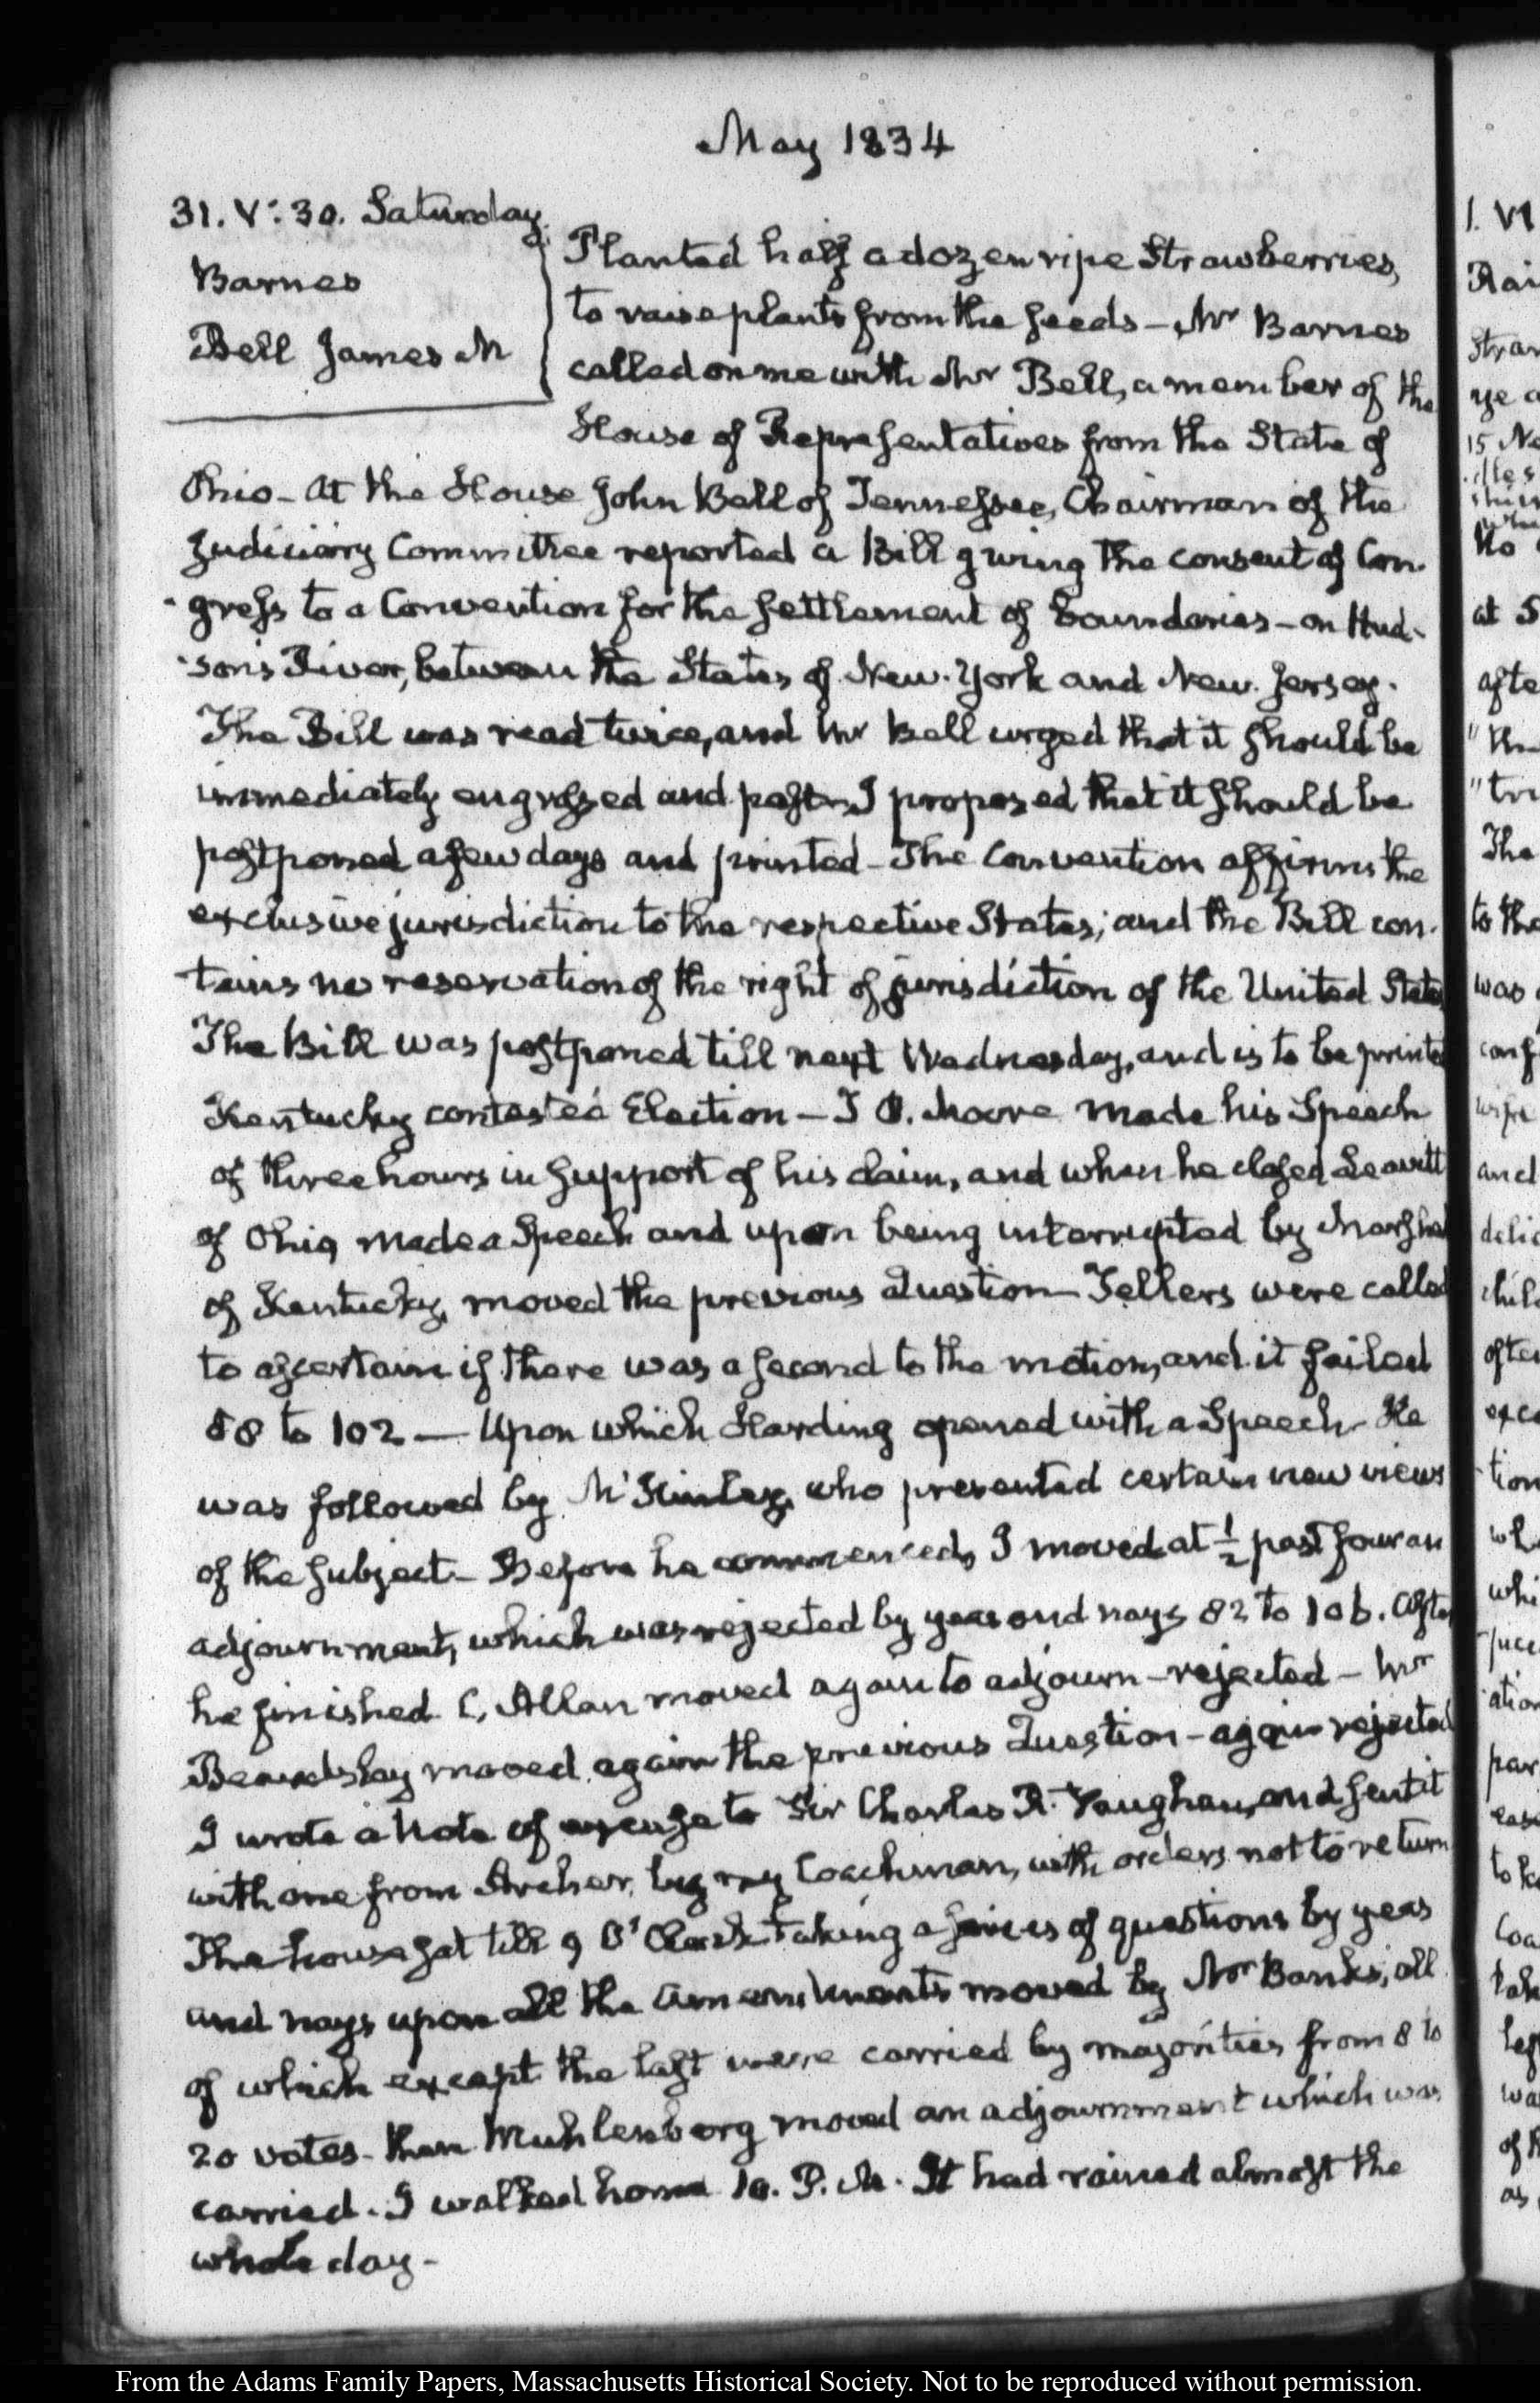 May 1834
31. V:30. Saturday
Barnes
Bell James M
Planted half a dozen ripe Strawberries,
to raise plants from the seeds — Mr Barnes
called on me with Mr Bell, a member of the
House of Representatives from the State of
Ohio — At the House John Bell of Tennessee, Chairman of the
Judiciary Committee reported a Bill giving the consent of Con-
-gress to a Convention for the settlement of boundaries — on Hud-
-son's River, between the States of New-York and New-Jersey.
The Bill was read twice, and Mr Bell urged that it should be
immediately engrossed and past. I proposed that it should be
postponed a few days and printed — The Convention affirms the
exclusive jurisdiction to the respective States; and the Bill con-
tains no reservation of the right of jurisdiction of the United States
The Bill was postponed till next Wednesday, and is to be printed
Kentucky contested Election — T. P. Moore made his Speech
of three hours in support of his claim, and when he closed Leavitt
of Ohio, made a Speech and upon being interrupted by Marshall
of Kentucky, moved the previous Question — Tellers were called
to ascertain if there was a second to the motion, and it failed
88 to 102 — Upon which Harding opened with a Speech — He
was followed by McKinley, who presented certain new views
of the subject — Before he commenced, I moved at ½ past four an
adjournment, which was rejected by yeas and nays 82 to 106. After
he finished C. Allan moved again to adjourn — rejected — Mr
Beardsley moved again the previous Question — again rejected
I wrote a Note of excuse to Sir Charles R. Vaughan, and sent it
with one from Archer, by my Coachman, with orders not to return
The house sat till 9 O'Clock taking a series of questions by yeas
and nays upon all the amendments moved by Mr Banks; all
of which except the last were carried by majorities from 8 to
20 votes — then Muhlenberg moved an adjournment which was
carried. I walked home 10. P.M. It had rained almost the
whole day —
1. VI
to the
was
and
From the Adams Family Papers, Massachusetts Historical Society. Not to be reproduced without permission.